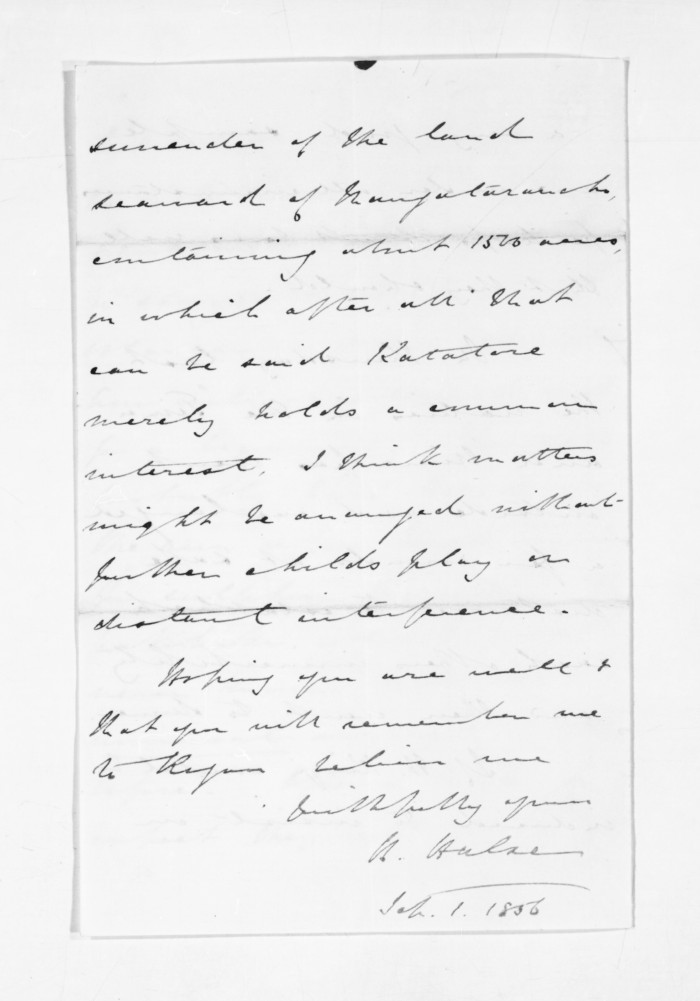 surrender of the land
seaward of
containing about 1500 acres,
in which after all that
can be said Katatore
merely holds a common
interest, I think matters
might be arranged without
further childs play or
distant interference.
Hoping you are well &
that you will remember me
to believe me
Faithfully yours
H. Halse
Sep. 1. 1856